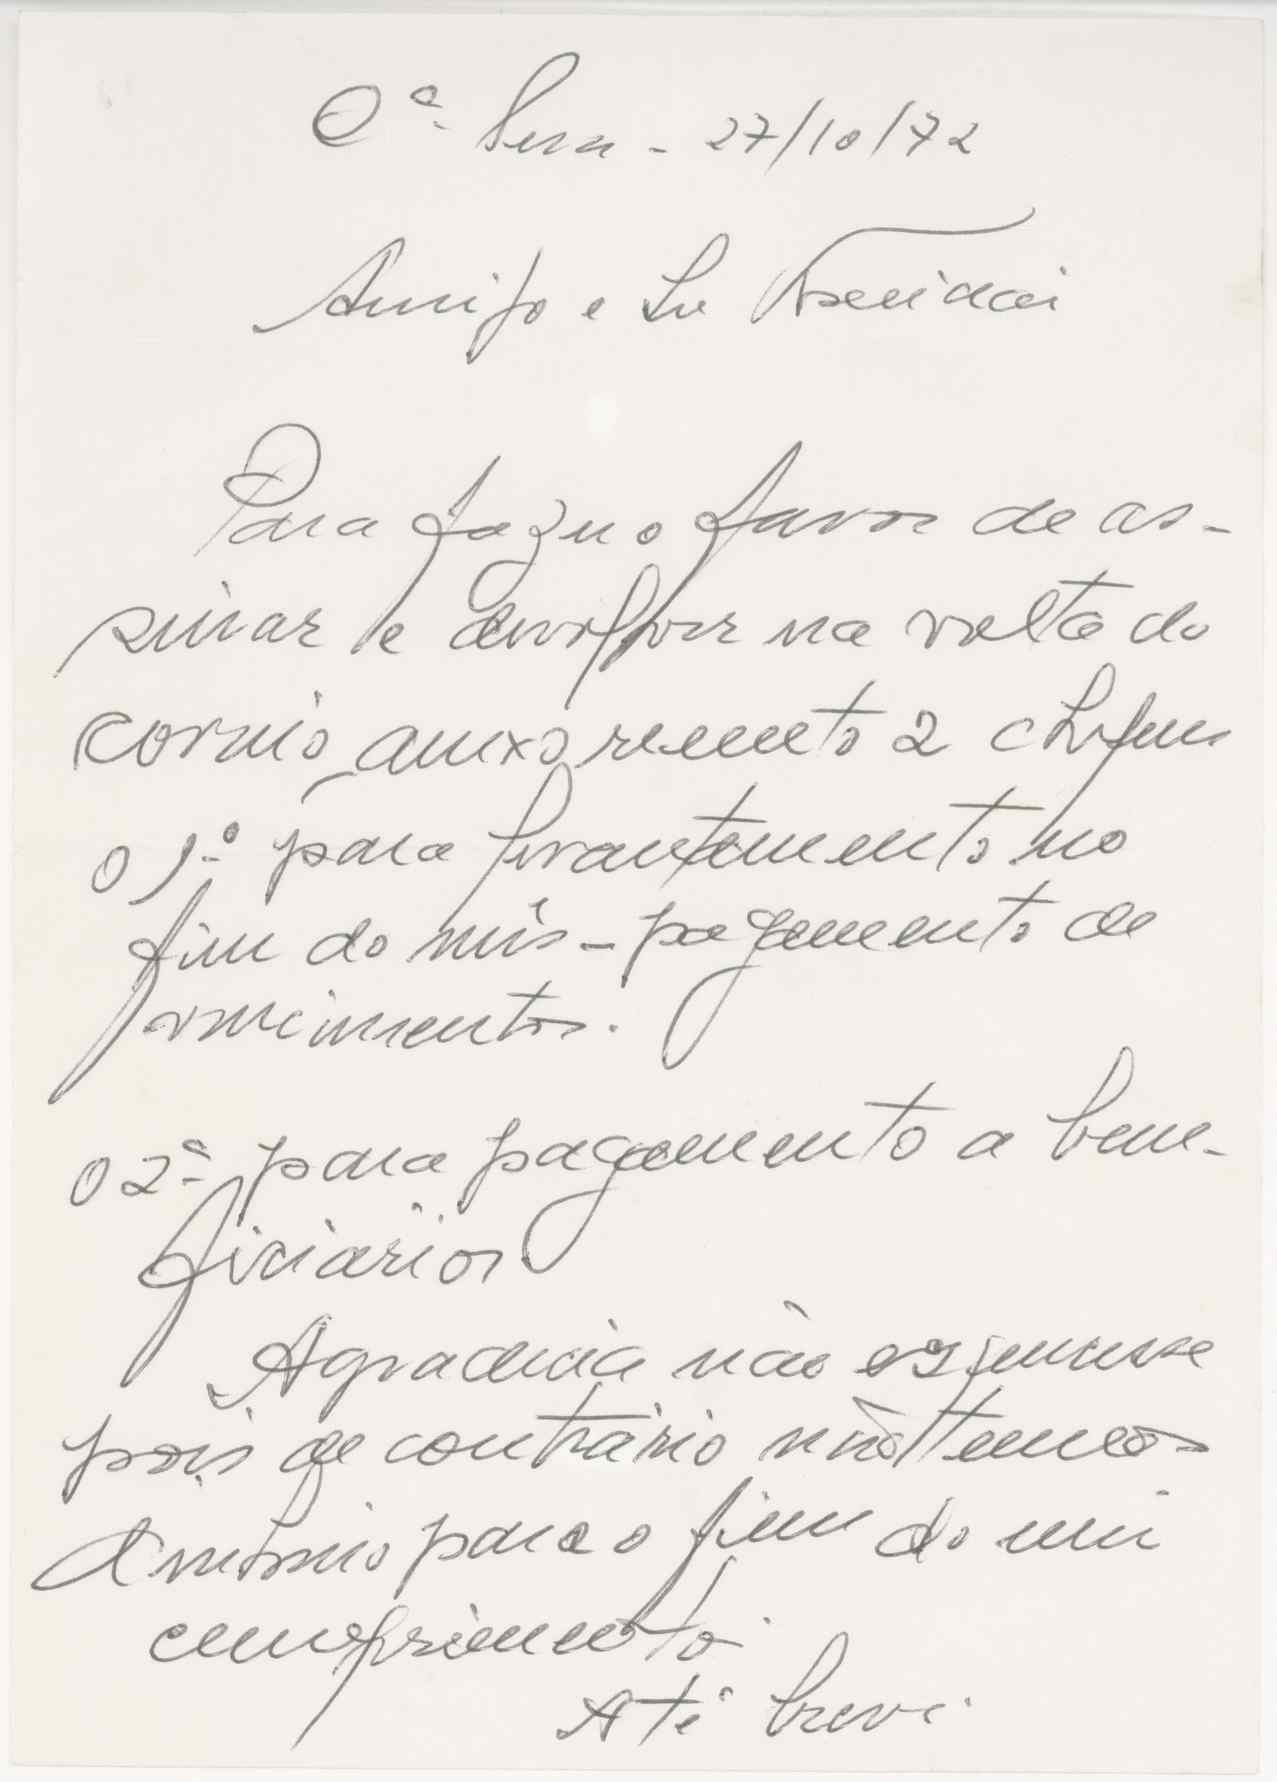 27/10/72
Amigo e Sr
Para fazer o favor de as-
sinar e devolver na volta do
correio, anexo remeto 2 cheques
O 1.º para levantamento no
fim do mês - pagamento de
vencimentos.
O 2.º para pagamento a bene-
ficiários
Agradecia não esquecesse
pois de contrário não temos
dinheiro para o fim do mês
cumprimento
Até breve